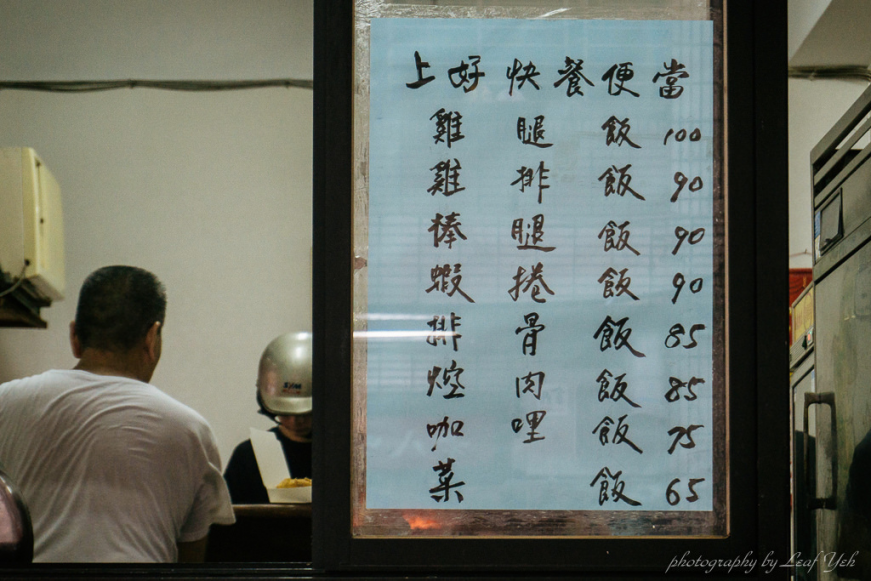 上好快餐便當
雞腿飯100
雞排飯90
棒腿飯90
蝦捲飯90
排骨飯85
焢肉飯85
咖哩飯75
菜飯65
SYM
photography by Leaf Yeh